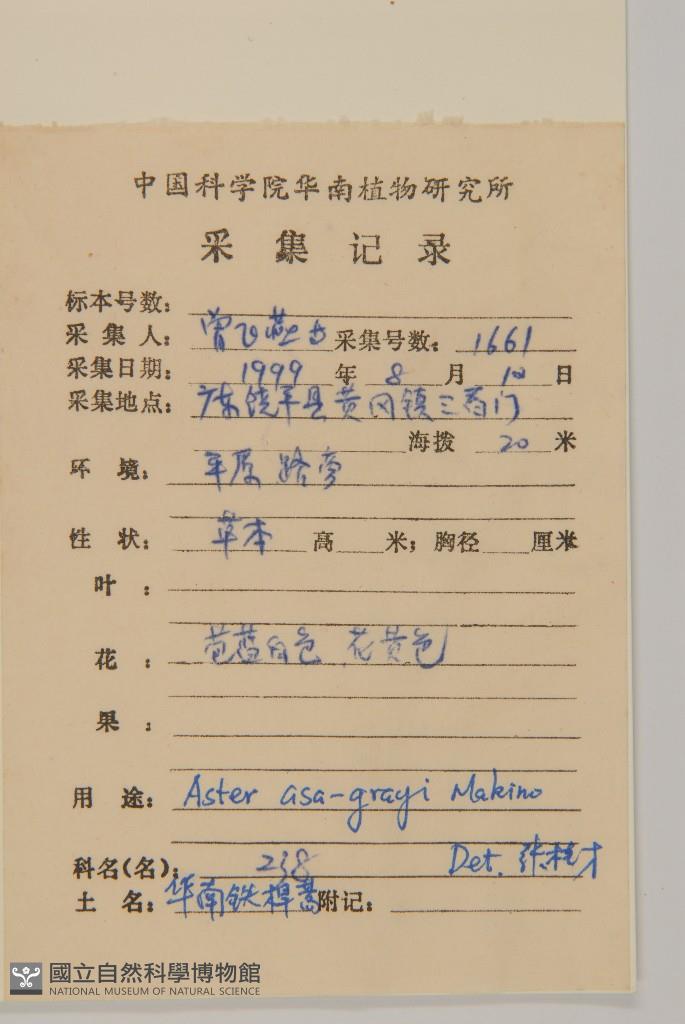 中国科学院华南植物研究所
采集记录
标本号数：
采集人：曾飞燕 采集号数：1661
采集日期：1999年8月10日
采集地点：广东饶平县黄冈镇三百门
海拨 20 米
环境：平原 路旁
性状：草本 高 米；胸径 厘米
叶：
花：苞蓝白色，花黄色
果：
用途：Aster asa-grayi Makino
科名(名)：238 Det. 张桂才
土名：华南铁桿蒿 附记：
國立自然科學博物館
NATIONAL MUSEUM OF NATURAL SCIENCE